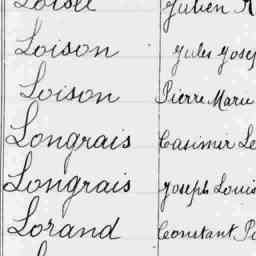 Loisel Julien
Loison Jules
Loison Pierre Marie
Longrais Casimir
Longrais Joseph Louis
Lorand Constant